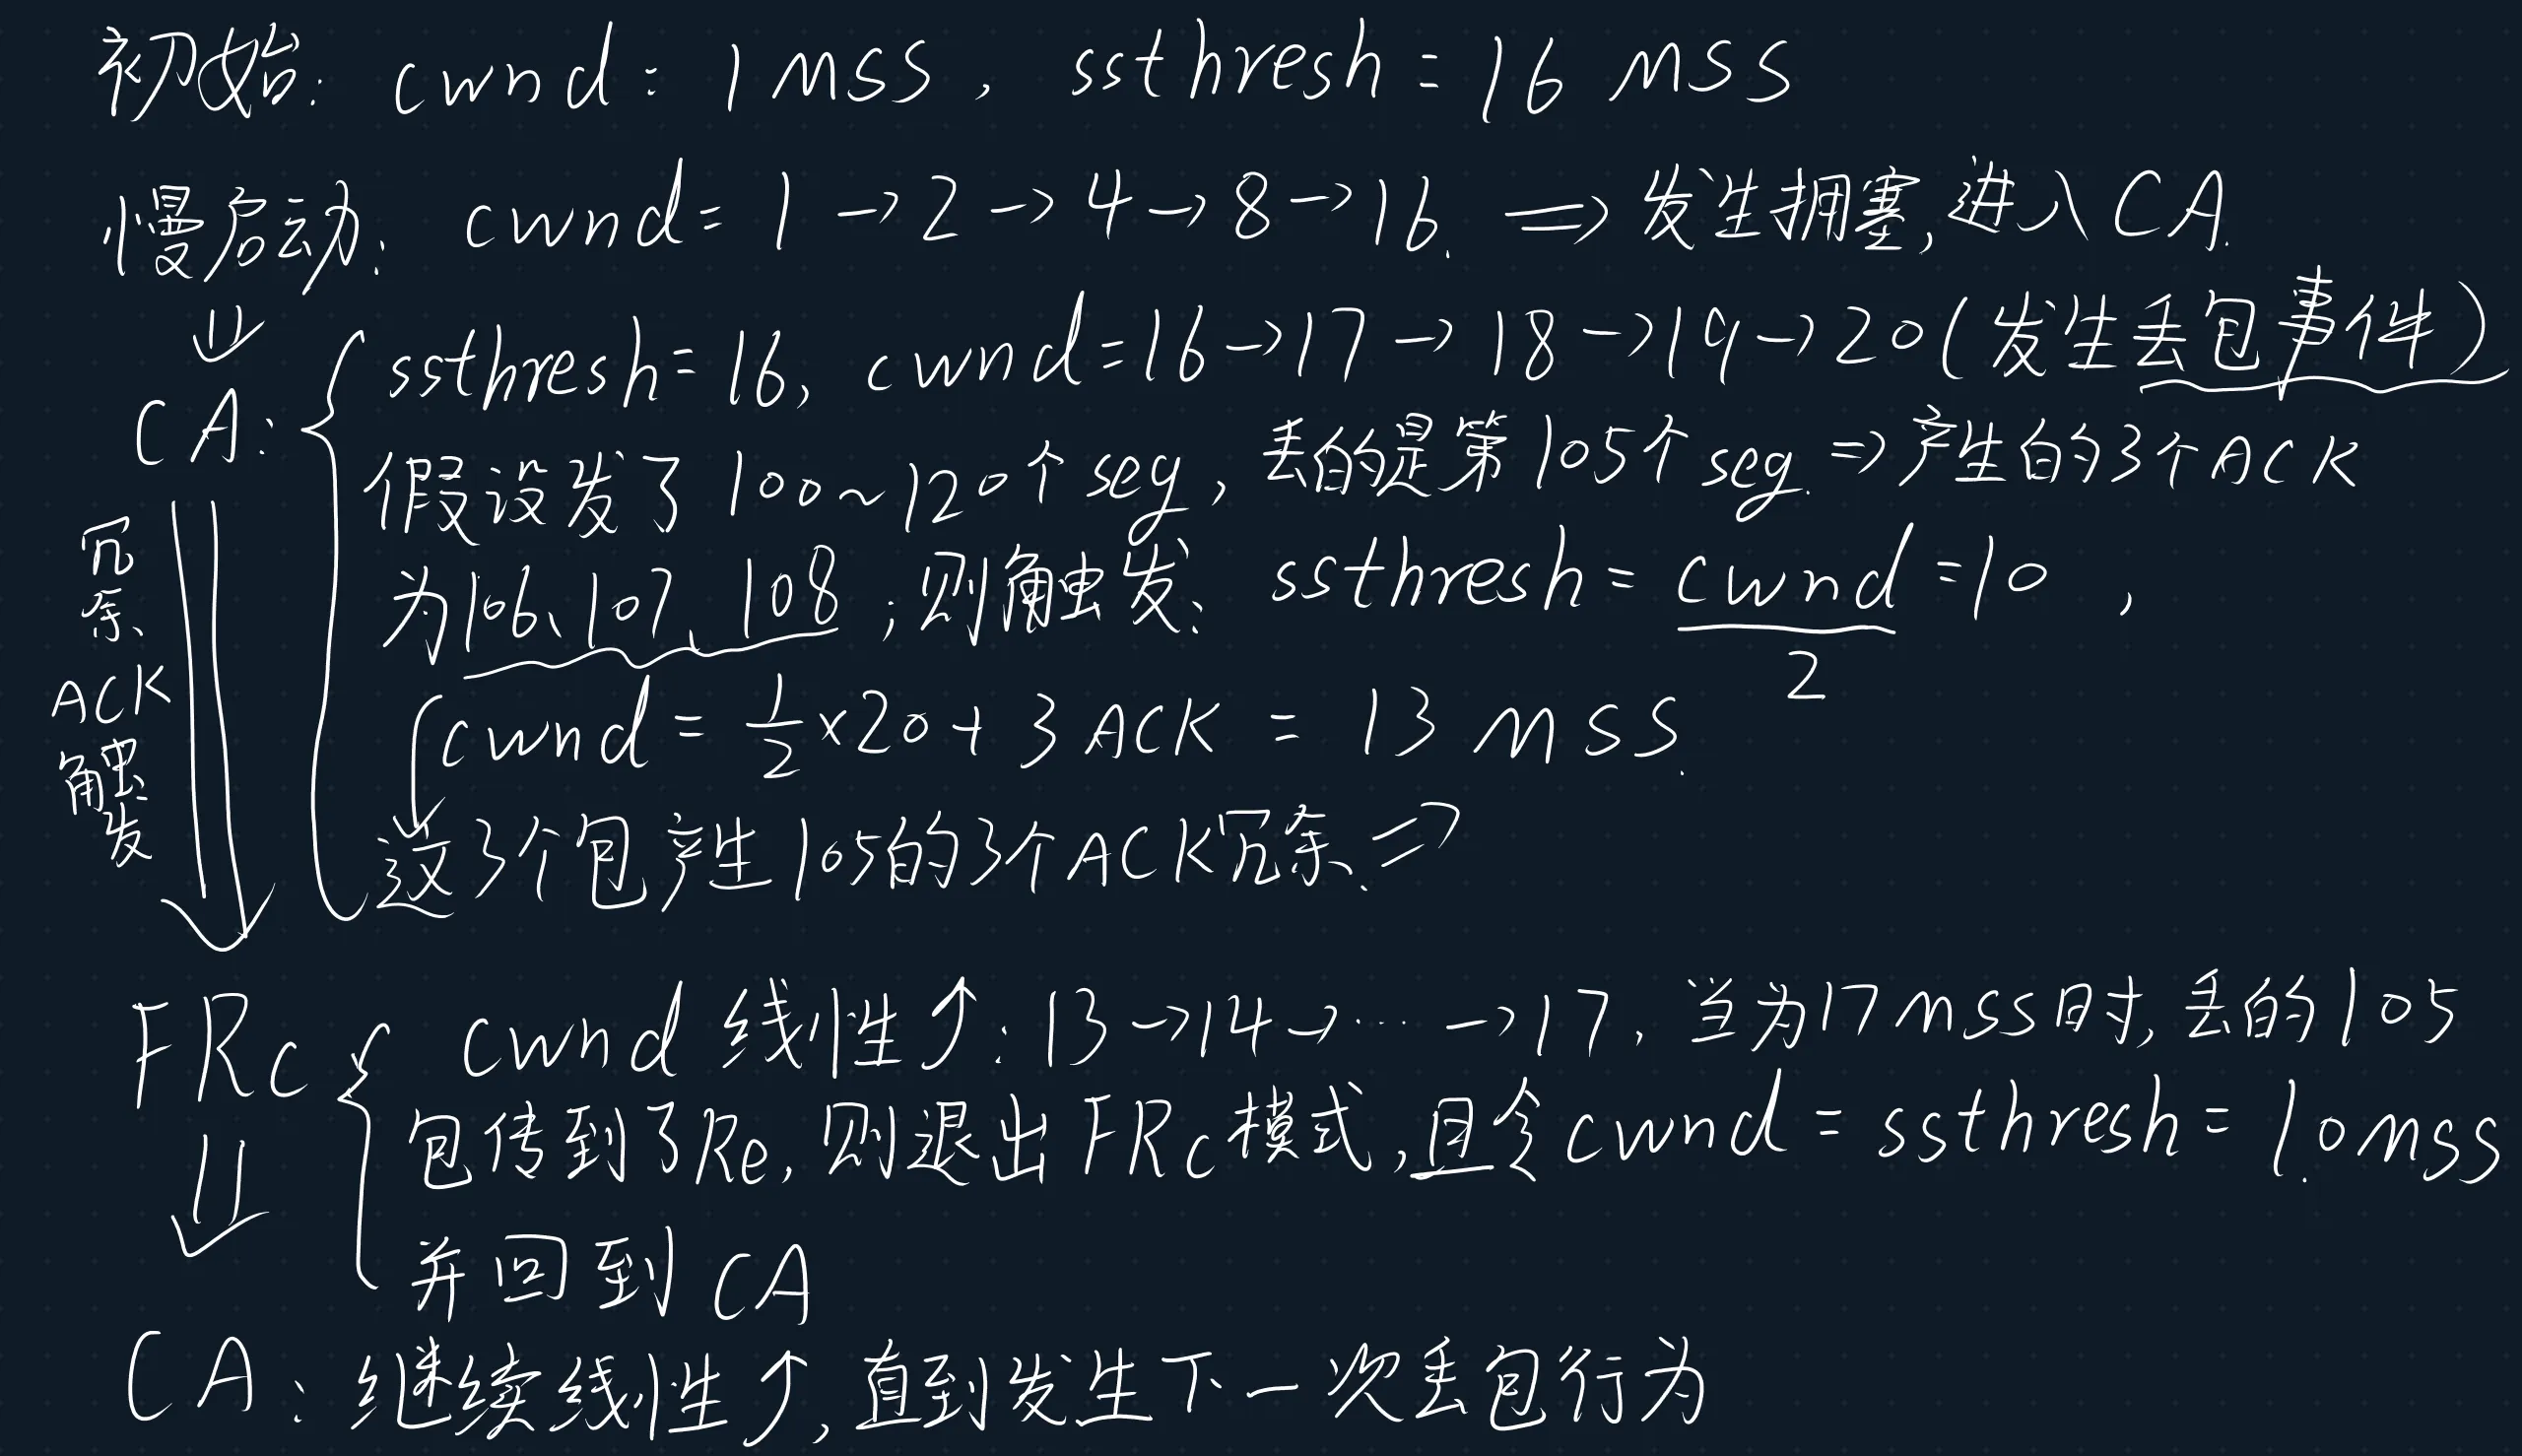 初始: cwnd: 1 MSS, ssthresh = 16 MSS
慢启动: cwnd = 1 → 2 → 4 → 8 → 16. ⇒ 发生拥塞,进入CA.
⇓
CA: ssthresh = 16, cwnd = 16 → 17 → 18 → 19 → 20 (发生丢包事件)
假设发了100~120个seg, 丢的是第105个seg. ⇒ 产生的3个ACK
为106、107、108; 则触发: ssthresh = cwnd/2 = 10,
cwnd = 1/2 × 20 + 3 ACK = 13 MSS.
这3个包产生105的3个ACK冗余. ⇒
冗余ACK触发
FRc cwnd 线性↑: 13 → 14 → … → 17, 当为17MSS时, 丢的105
包传到了Re, 则退出FRc模式,且令cwnd = ssthresh = 10MSS
并回到CA
⇓
CA: 继续线性↑, 直到发生下一次丢包行为